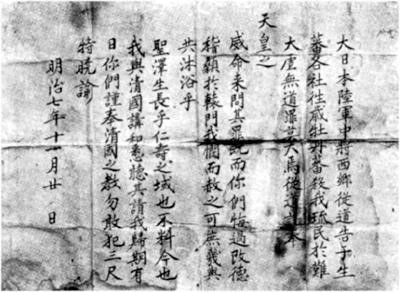 大日本陸軍中將西鄉從道告于生
蕃各社往歲牡丹蕃殺我琉民於難
大虐無道罪莫大焉從道奉
天皇之
威命来問其罪既而你們悔過改德
稽顙於轅門我憫而赦之可庶幾與
共沐浴乎
聖澤生長乎仁壽之域也不料今也
我與清國講和悉聽其請我歸期有
日你們謹奉清國之教勿敢犯三尺
特曉諭
明治七年十一月廿 日